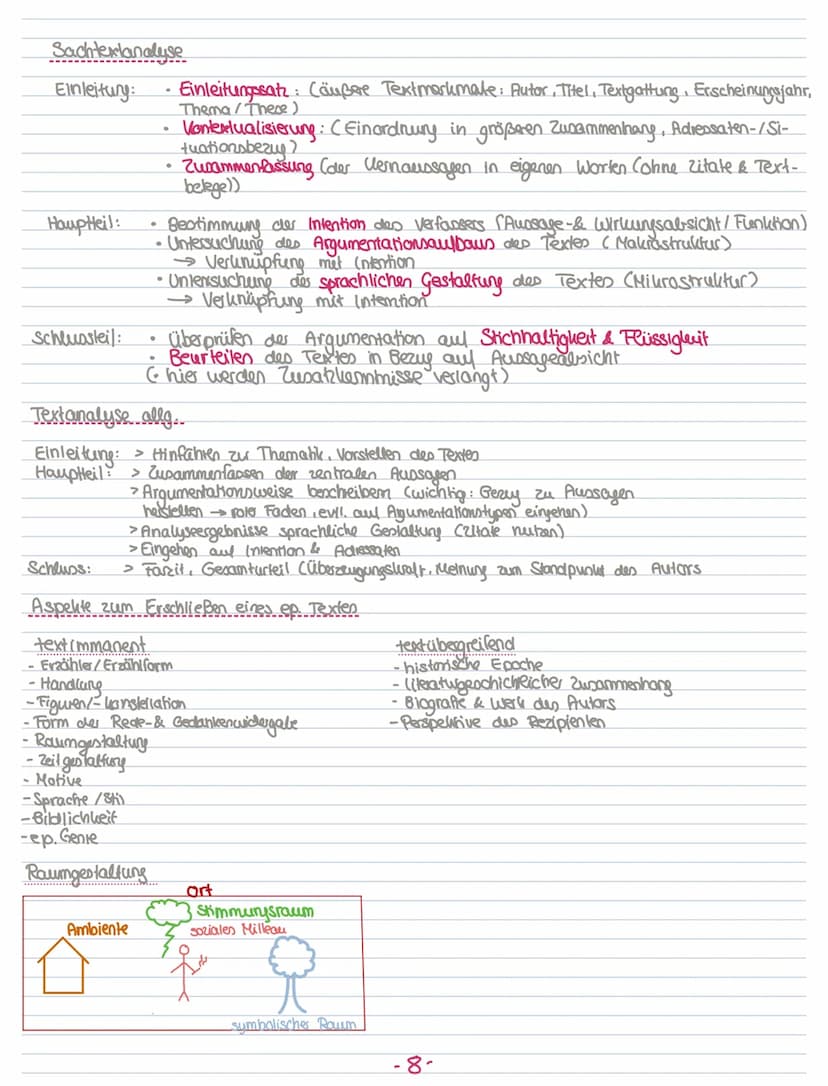 Sachtextanalyse
Einleitung: · Einleitungssatz: (äußere Textmerkmale: Autor, Titel, Textgattung, Erscheinungsjahr,
Thema/These)
· Kontextualisierung: (Einordnung in größeren Zusammenhang, Adressaten-/Si-
tuationsbezug)
· Zusammenfassung (der Kernaussagen in eigenen Worten (ohne Zitate & Text-
belege))
Hauptteil: · Bestimmung der Intention des Verfassers (Aussage-& Wirkungsabsicht/Funktion)
· Untersuchung des Argumentationsaufbaus des Textes (Makrostruktur)
→ Verknüpfung mit Intention
· Untersuchung der sprachlichen Gestaltung des Textes (Mikrostruktur)
→ Verknüpfung mit Intention
Schlussteil: · Überprüfen der Argumentation auf Stichhaltigkeit & Flüssigkeit
· Beurteilen des Textes in Bezug auf Aussageabsicht
(· hier werden Zusatzkenntnisse verlangt)
Textanalyse allg.
Einleitung: > Hinführen zu Thematik, Vorstellen des Textes
Hauptteil: > Zusammenfassen der zentralen Aussagen
> Argumentationsweise beschreiben (wichtig: Bezug zu Aussagen
herstellen → roter Faden, evtl. auf Argumentationstypen eingehen)
> Analyseergebnisse sprachliche Gestaltung (Zitate nutzen)
> Eingehen auf Intention & Adressaten
Schluss: > Fazit, Gesamturteil (Überzeugungskraft, Meinung zum Standpunkt des Autors
Aspekte zum Erschließen eines ep. Textes
textimmanent
- Erzähler/Erzählform
- Handlung
- Figuren/-konstellation
- Form der Rede-& Gedankenwidergabe
- Raumgestaltung
- Zeitgestaltung
- Motive
- Sprache/Stil
- Bildlichkeit
- ep. Genre
textübergreifend
- historische Epoche
- literaturgeschichtlicher Zusammenhang
- Biografie & Werk des Autors
- Perspektive des Rezipienten
Raumgestaltung
Ort
Stimmungsraum
Ambiente
soziales Milleau
symbolischer Raum
- 8 -